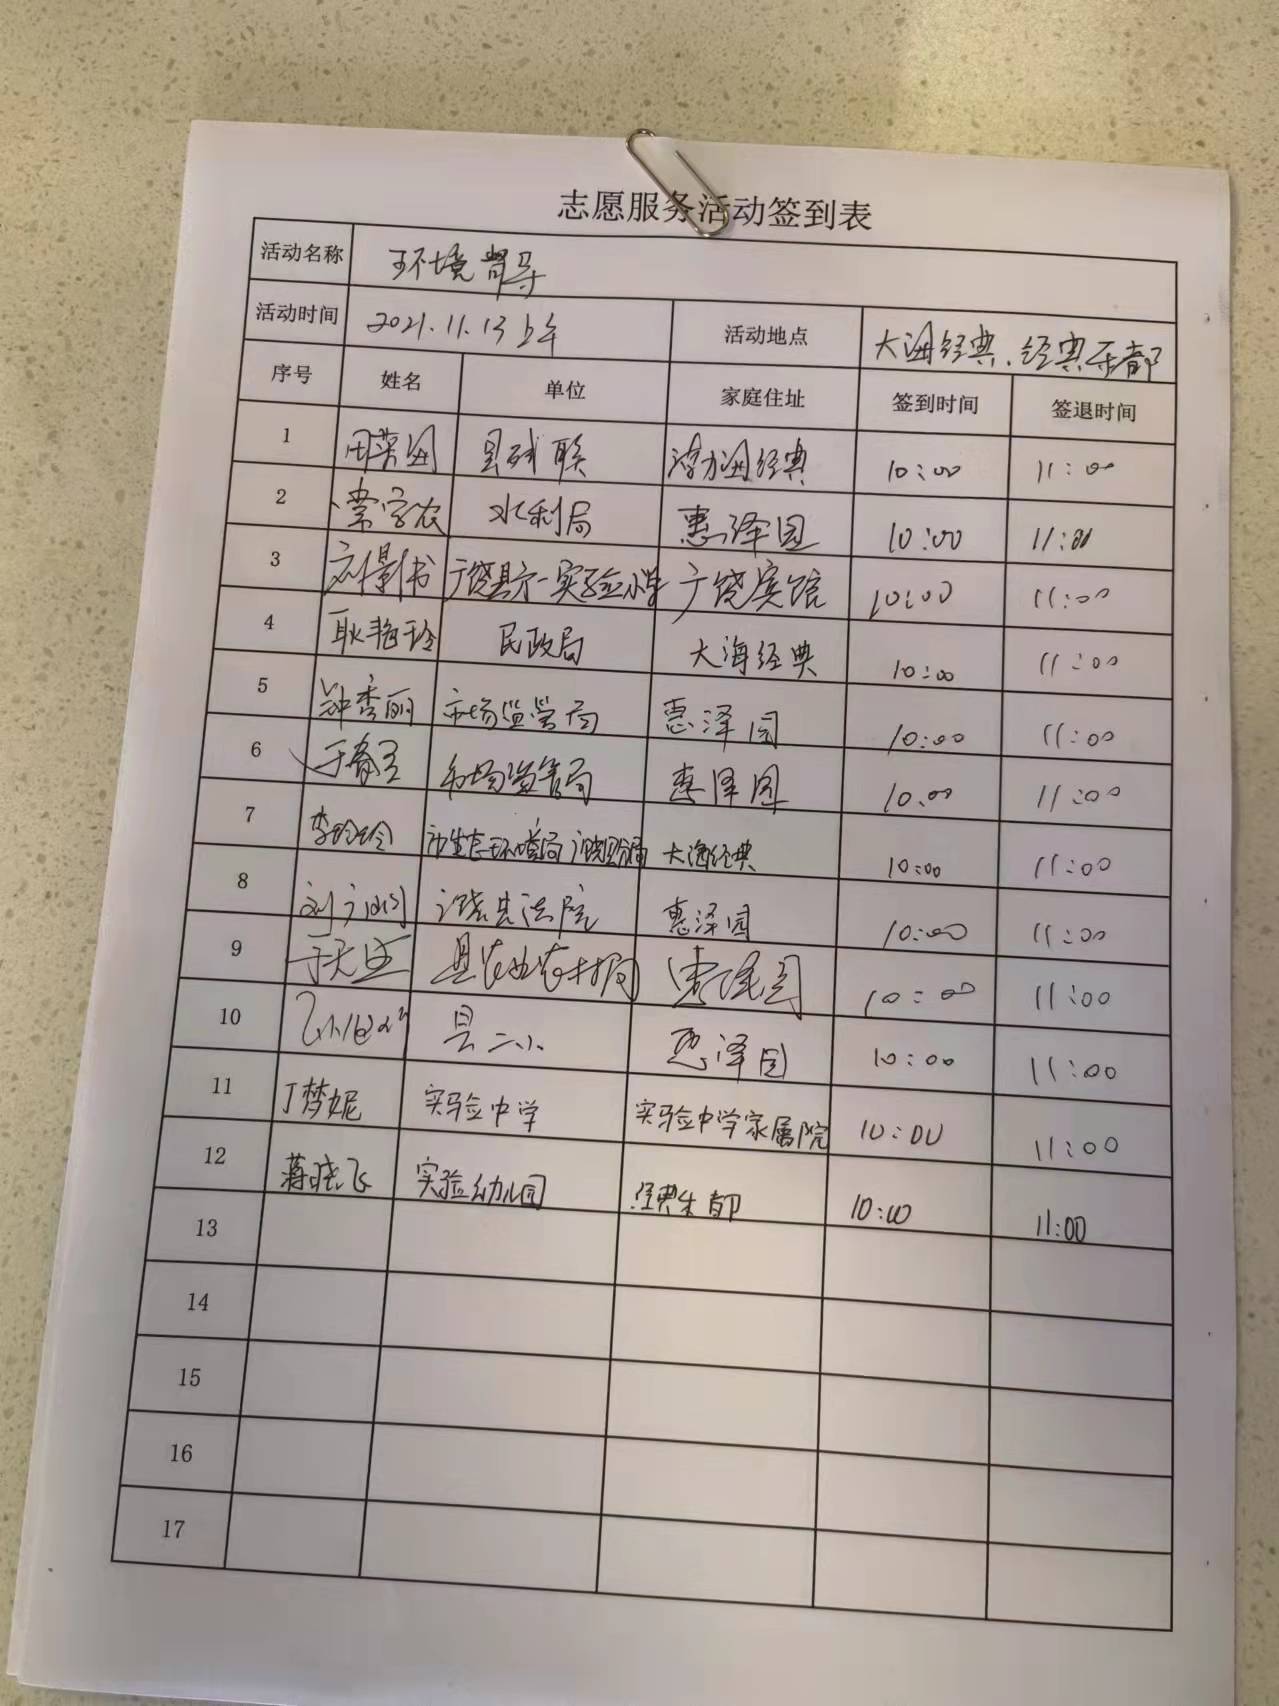 志愿服务活动签到表
活动名称 环境督导
活动时间 2021.11.13上午 活动地点 大海经典、经典东都
序号 姓名 单位 家庭住址 签到时间 签退时间
1 县残联 渤海经典 10:00 11:00
2 常学农 水利局 惠泽园 10:00 11:00
3 刘景书 广饶县第一实验小学 广饶宾馆 10:00 11:00
4 耿艳玲 民政局 大海经典 10:00 11:00
5 钟秀丽 市场监管局 惠泽园 10:00 11:00
6 市场监管局 惠泽园 10:00 11:00
7 李玲玲 市生态环境局广饶县分局 大海经典 10:00 11:00
8 广饶县法院 惠泽园 10:00 11:00
9 县农业农村局 惠泽园 10:00 11:00
10 县二小 惠泽园 10:00 11:00
11 丁梦妮 实验中学 实验中学家属院 10:00 11:00
12 蒋晓飞 实验幼儿园 经典东都 10:00 11:00
13
14
15
16
17